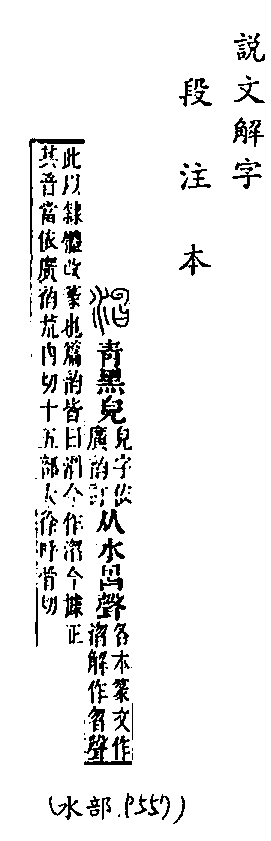 說文解字
段注本
青黑皃
皃字依
廣韵訂
从水聲
各本篆文作
解作曶聲
此以隸體改篆也篇韵皆曰今作今據正
其音當依廣韵荒內切十五部大徐呼骨切
(水部.P557)